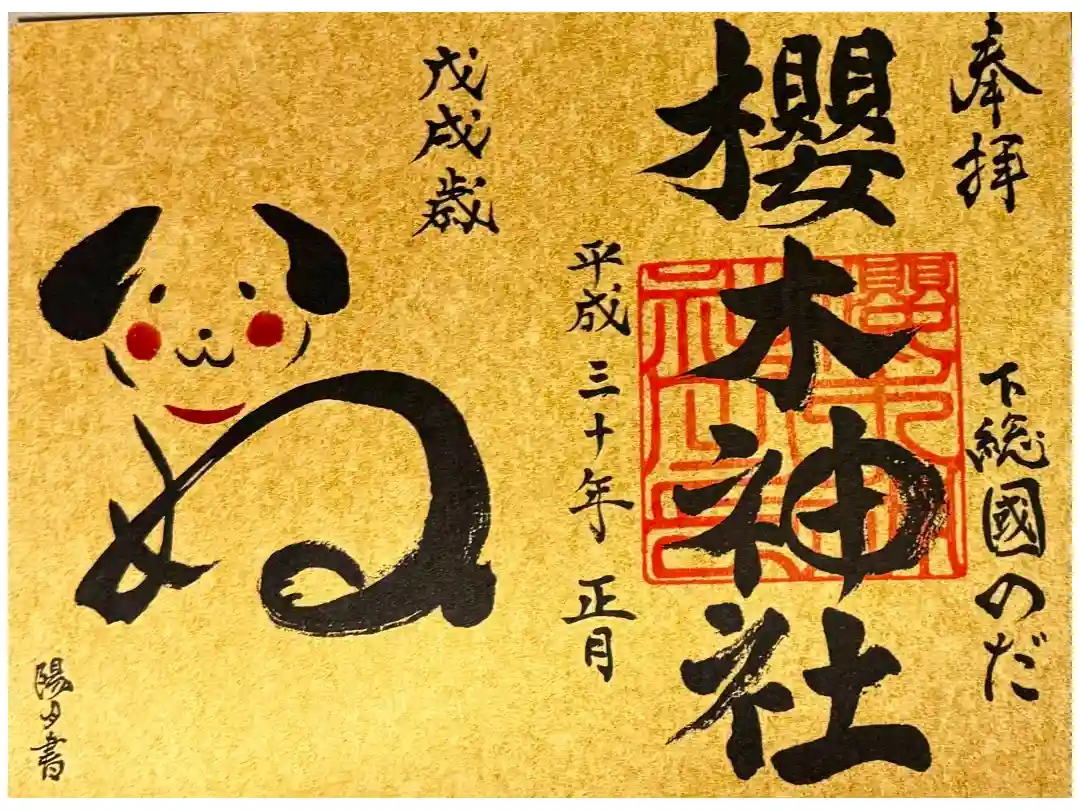 奉拝
下総國のだ
櫻木神社
平成三十年 正月
戊戌歳
ぬ
陽 書